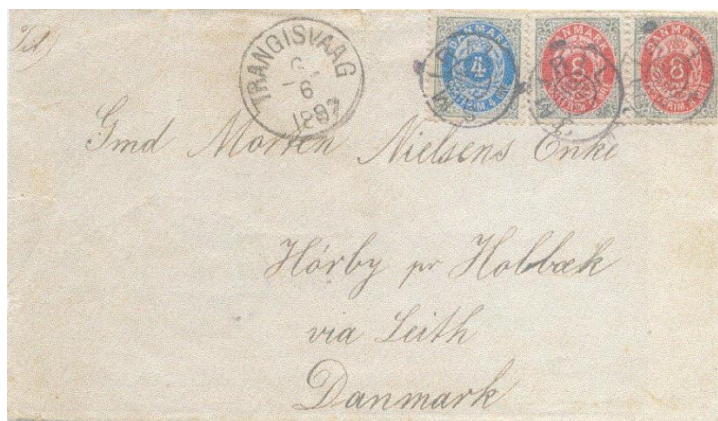 TRANGISVAAG
6
1897
DANMARK
4
DANMARK
8
DANMARK
8
Gmd Morten Nielsens Enke
Hörby pr Holbæk
via Leith
Danmark